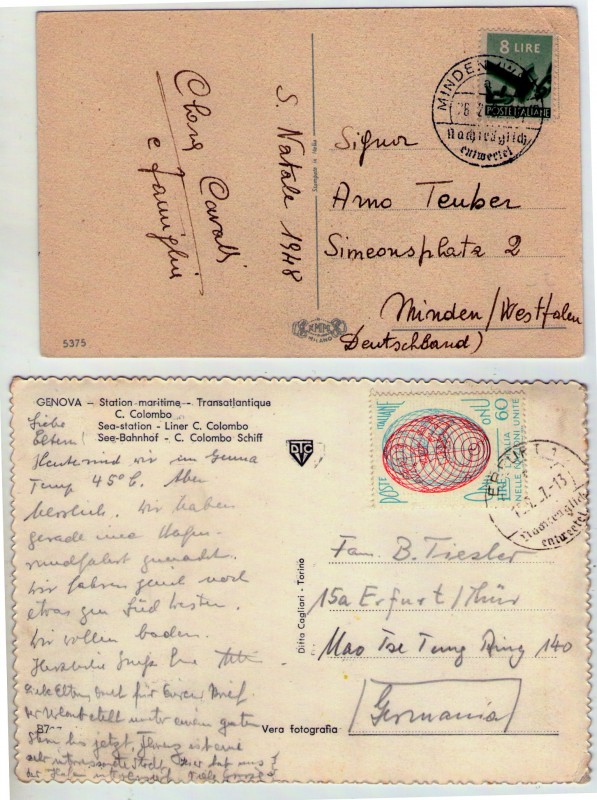 8 LIRE
POSTE ITALIANE
MINDEN (W
Nachträglich
entwertet
Signor
Arno Teuber
Simeonsphatz 2
Minden/Westfalen
Deutschland)
S. Natale 1948
Clara Cavalli
e famiglia
Stampato in Italia
MILANO
5375
GENOVA – Station maritime - Transatlantique
C. Colombo
Sea-station - Liner C. Colombo
See-Bahnhof - C. Colombo Schiff
Liebe
Eltern!
Heute sind wir in Genua
Temp 45°C. Aber
herrlich. Wir haben
gerade eine Hafen-
rundfahrt gemacht.
Wir fahren gleich noch
etwas gen Süd Westen.
Wir wollen baden.
Herzliche Grüße
für Euren Brief.
guten
bis jetzt, Florenz ist eine
sehr interessante Stadt,
der Hafen
B7
Vera fotografia
Ditta Cagliari - Torino
POSTE ITALIANE
LIRE 60
ONU
ITALIA
NELLE NAZIONI UNITE
ERFURT
Nachträglich
entwertet
Fam. B. Tiesler
15a Erfurt/Thür
Mao Tse Tung Ring 140
Germania